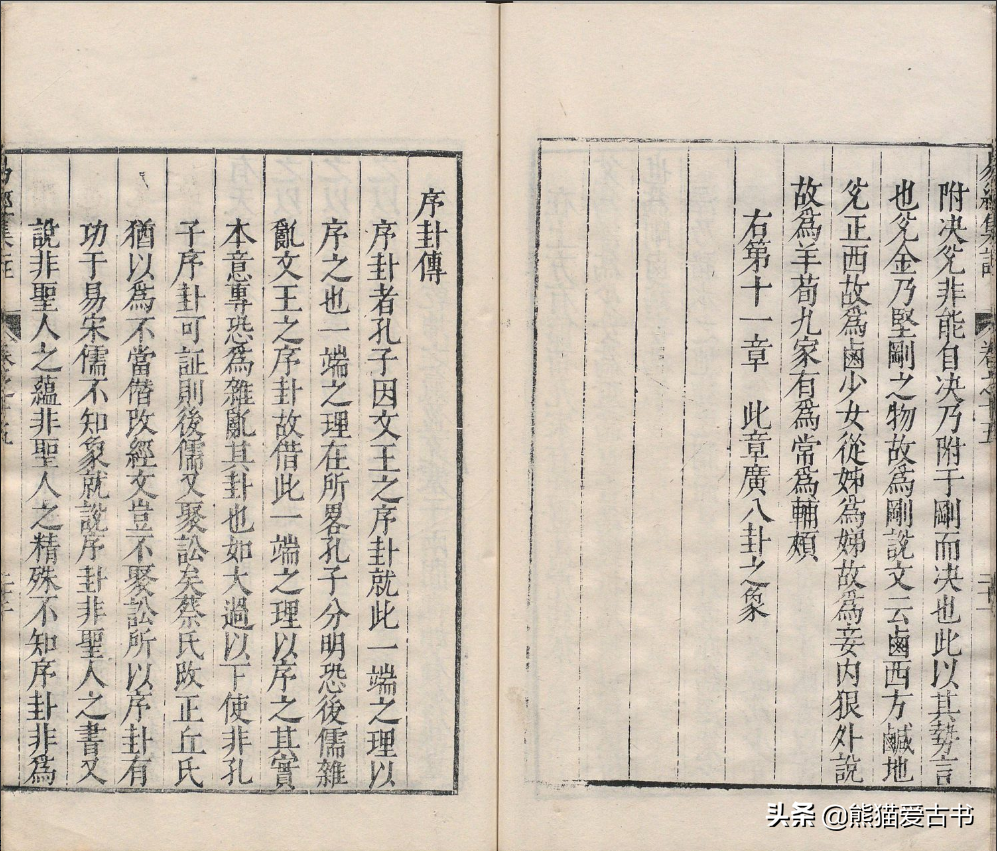 附决兊非能自决乃附于剛而决也此以其勢言
也兊金乃堅剛之物故爲剛說文云鹵西方鹹地
兊正西故爲鹵少女從姊爲娣故爲妾内狠外說
故爲羊荀九家有爲常爲輔頰
右第十一章 此章廣八卦之象
序卦傳
序卦者孔子因文王之序卦就此一端之理以
序之也一端之理在所畧孔子分明恐後儒雜
亂文王之序卦故借此一端之理以序之其實
本意專恐爲雜亂其卦也如大過以下使非孔
子序卦可証則後儒又聚訟矣蔡氏改正丘氏
猶以爲不當僭改經文豈不聚訟所以序卦有
功于易宋儒不知象就說序卦非聖人之書又
說非聖人之蘊非聖人之精殊不知序卦非爲
头条 @熊猫爱古书